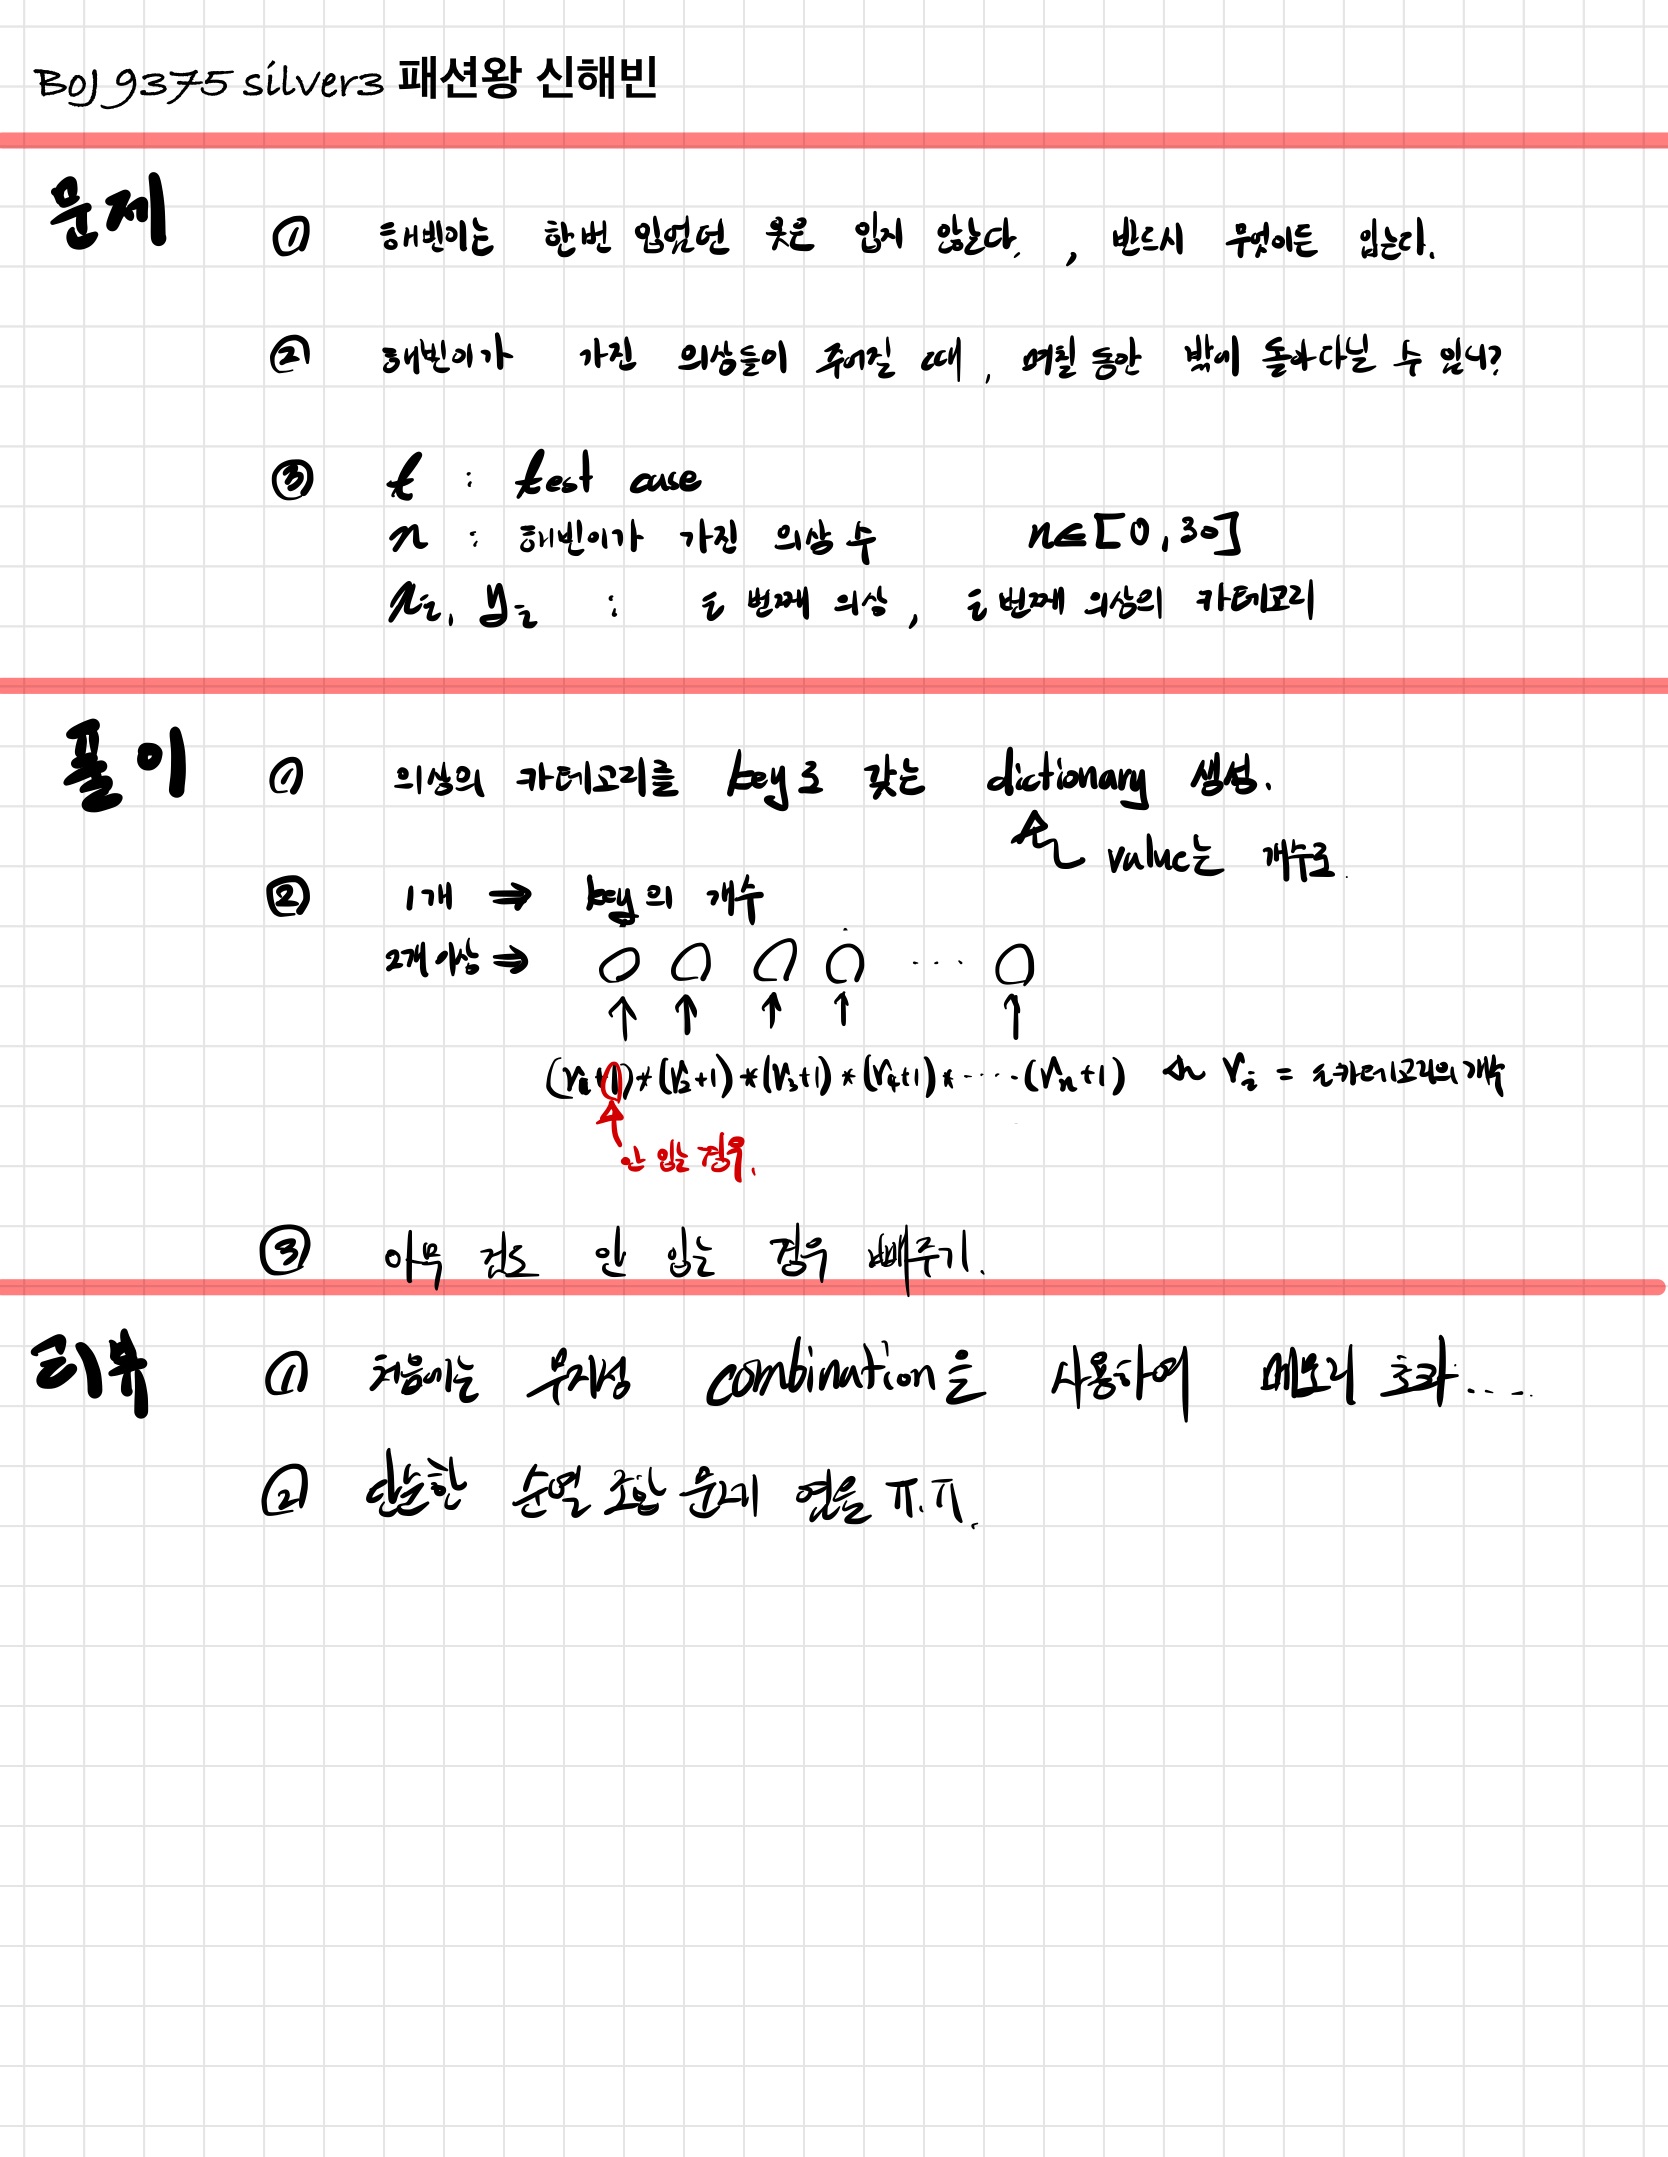 BOJ 9375 silver3 패션왕 신해빈
문제
① 해빈이는 한번 입었던 옷은 입지 않는다. , 반드시 무엇이든 입는다.
② 해빈이가 가진 의상들이 주어질 때, 며칠 동안 밖에 돌아다닐 수 있니?
③ t : test case
n : 해빈이가 가진 의상 수 n∈[0,30]
xᵢ, yᵢ : i 번째 의상, i 번째 의상의 카테고리
풀이
① 의상의 카테고리를 key로 갖는 dictionary 생성.
value는 개수로.
② 1개 ⇒ key의 개수
2개 이상 ⇒ O O O O ... O
↑ ↑ ↑ ↑ ↑
(V₁+1)*(V₂+1)*(V₃+1)*(V₄+1)*.....(Vₙ+1) Vᵢ = i 카테고리의 개수
안 입는 경우.
③ 아무 것도 안 입는 경우 빼주기.
리뷰
① 처음에는 무지성 combination을 사용하여 메모리 초과.....
② 단순한 순열 조합 문제 였음 ㅠ.ㅠ.